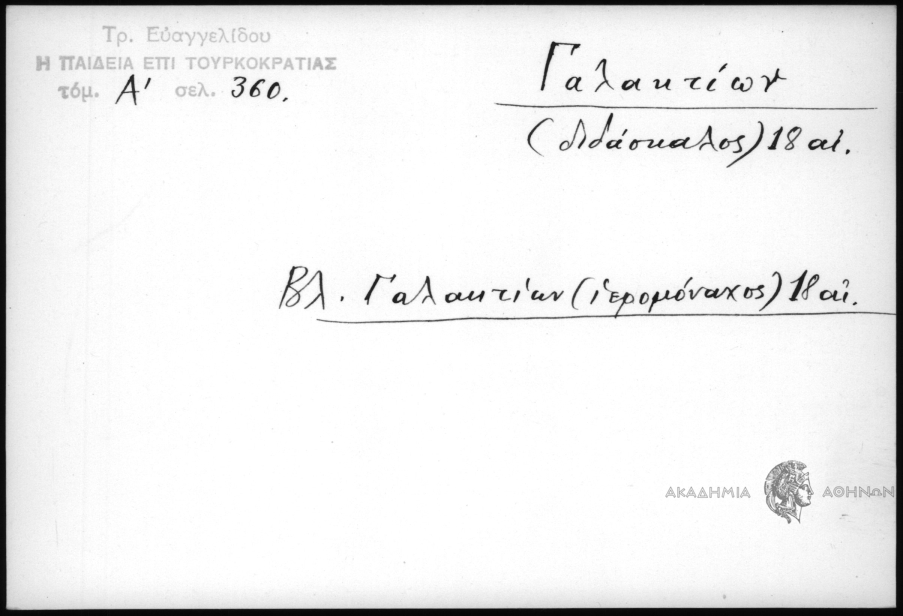 Τρ. Εὐαγγελίδου
Η ΠΑΙΔΕΙΑ ΕΠΙ ΤΟΥΡΚΟΚΡΑΤΙΑΣ
τόμ. Α' σελ. 360.
Γαλακτίων
(διδάσκαλος) 18 αἰ.
Βλ. Γαλακτίων (ἱερομόναχος) 18 αἰ.
ΑΚΑΔΗΜΙΑ ΑΘΗΝΩΝ